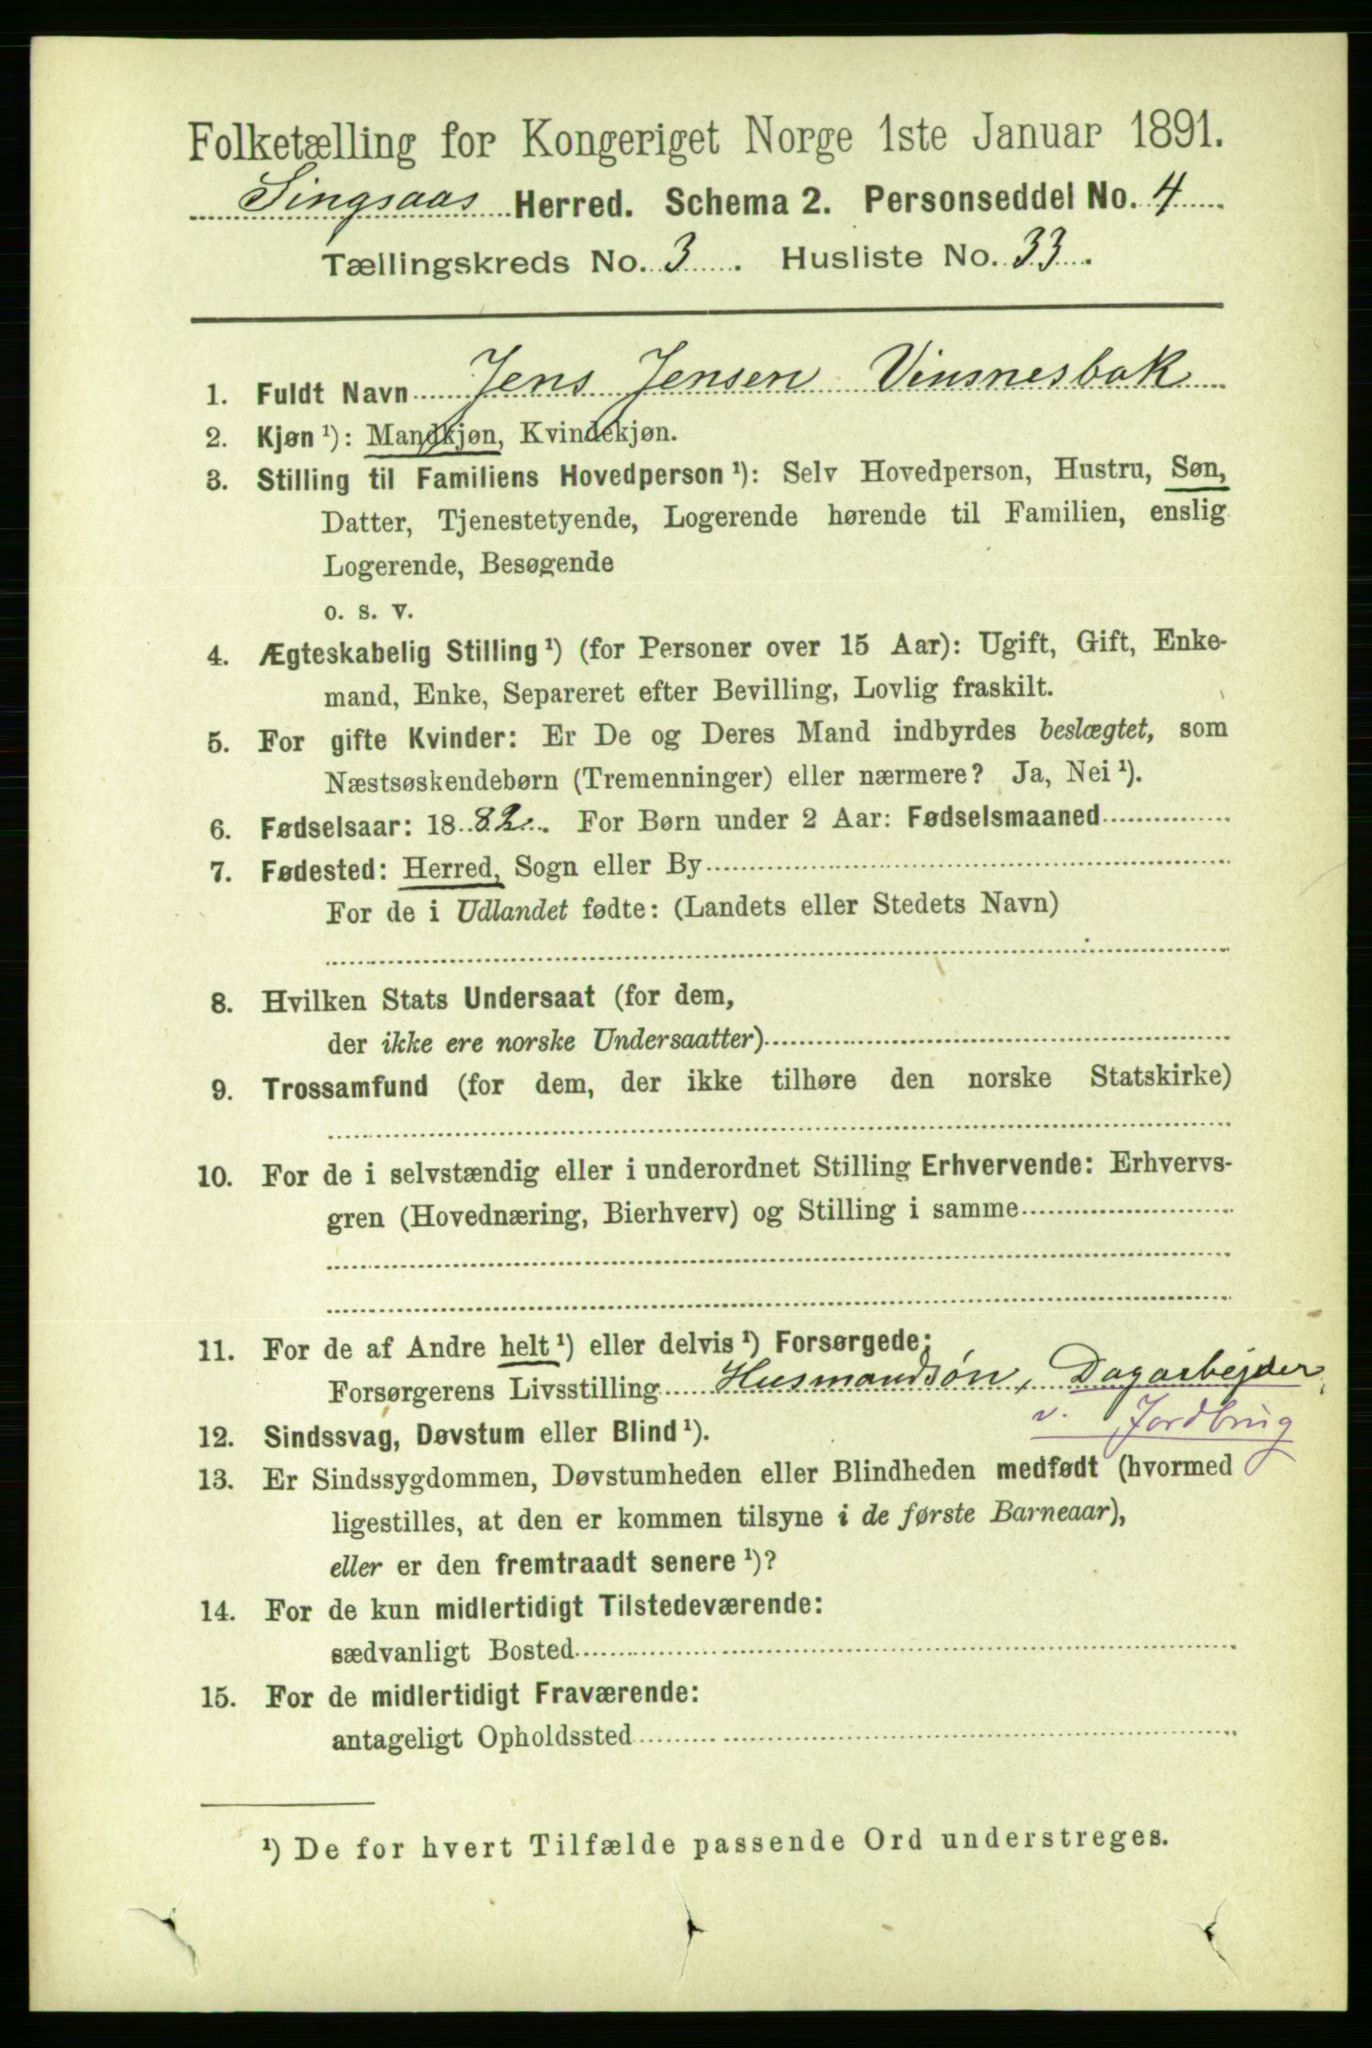 Folketælling for Kongeriget Norge 1ste Januar 1891.
Singsaas Herred. Schema 2. Personseddel No. 4
Tællingskreds No. 3. Husliste No. 33.
1. Fuldt Navn Jens Jensen Vinsnesbak
2. Kjøn ¹): Mandkjøn, Kvindekjøn.
3. Stilling til Familiens Hovedperson ¹): Selv Hovedperson, Hustru, Søn,
Datter, Tjenestetyende, Logerende hørende til Familien, enslig
Logerende, Besøgende
o. s. v.
4. Ægteskabelig Stilling ¹) (for Personer over 15 Aar): Ugift, Gift, Enke-
mand, Enke, Separeret efter Bevilling, Lovlig fraskilt.
5. For gifte Kvinder: Er De og Deres Mand indbyrdes beslægtet, som
Næstsøskendebørn (Tremenninger) eller nærmere? Ja, Nei ¹).
6. Fødselsaar: 1882. For Børn under 2 Aar: Fødselsmaaned
7. Fødested: Herred, Sogn eller By
For de i Udlandet fødte: (Landets eller Stedets Navn)
8. Hvilken Stats Undersaat (for dem,
der ikke ere norske Undersaatter)
9. Trossamfund (for dem, der ikke tilhøre den norske Statskirke)
10. For de i selvstændig eller i underordnet Stilling Erhvervende: Erhvervs-
gren (Hovednæring, Bierhverv) og Stilling i samme
11. For de af Andre helt ¹) eller delvis ¹) Forsørgede:
Forsørgerens Livsstilling Husmandsøn, Dagarbejder
v. Jordbrug
12. Sindssvag, Døvstum eller Blind ¹).
13. Er Sindssygdommen, Døvstumheden eller Blindheden medfødt (hvormed
ligestilles, at den er kommen tilsyne i de første Barneaar),
eller er den fremtraadt senere ¹)?
14. For de kun midlertidigt Tilstedeværende:
sædvanligt Bosted
15. For de midlertidigt Fraværende:
antageligt Opholdssted
¹) De for hvert Tilfælde passende Ord understreges.